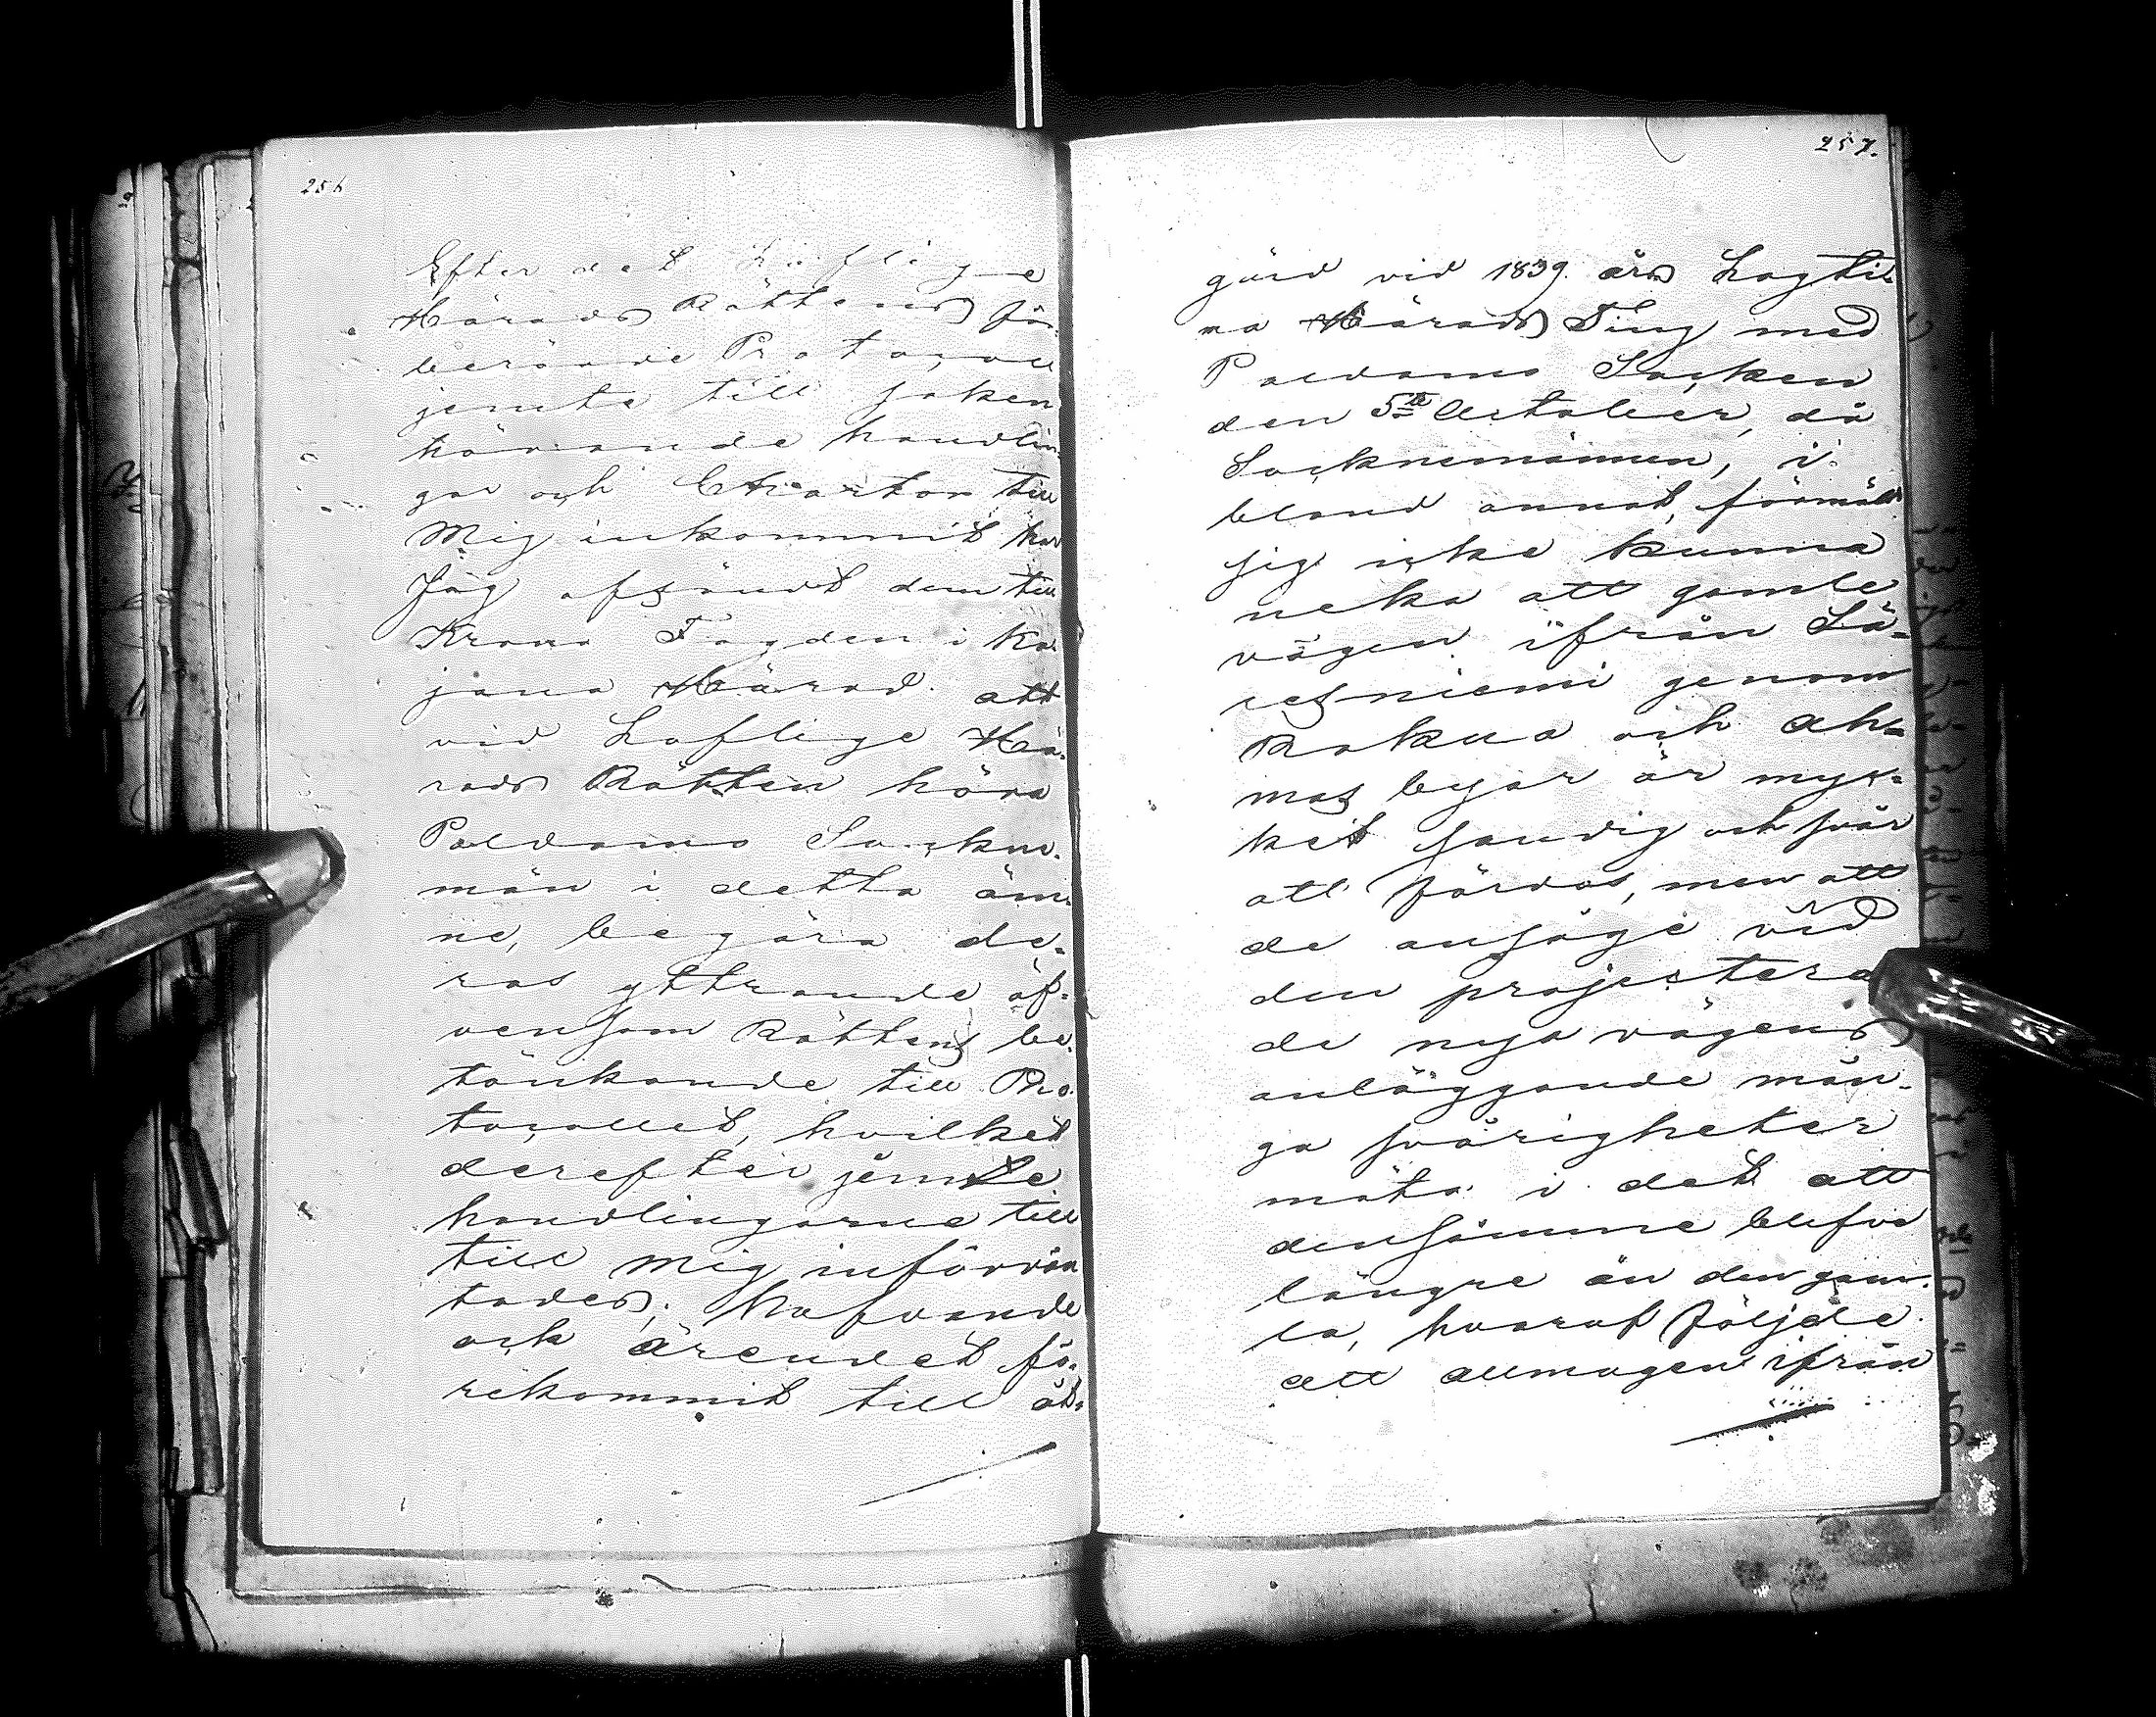 256
Efter det Höflige
Härads Rättens få
berörde Protocoll
jemte till saken
hörande handlin-
gar och Chartor till
Mig inkommit har
Jag afsändt dem till
Krono Fogden i Ka-
jana Härad att
vid Loflige Hä-
rads Rätten höra
Paldamo Sockne-
män i detta äm-
ne, begära de-
ras yttrande äf-
vensom Rättens be-
tänkande till Pro-
tocollet, hvilket
derefter jemte
handlingarne till
till mig införvän
tades; Hafvande
ock ärendet fö-
rekommit till åt-
257.
gärd vid 1839 års Lagti-
ma Härads Ting med
Paldamo Socken
den 5te October, då
Socknemännen, i
bland annat, förmält
sig icke kunna
neka att gamle
vägen ifrån Sä-
resniemi genom
Rokua och Ah-
mas byar är myc-
ket sandig och svår
att färdas, men att
de ansåge vid
den projectera
de nya vägens
anläggande mån-
ga svårigheter
möta i det att
densamme blefve
längre än den gam-
la, hvaraf följde
att allmogen ifrån